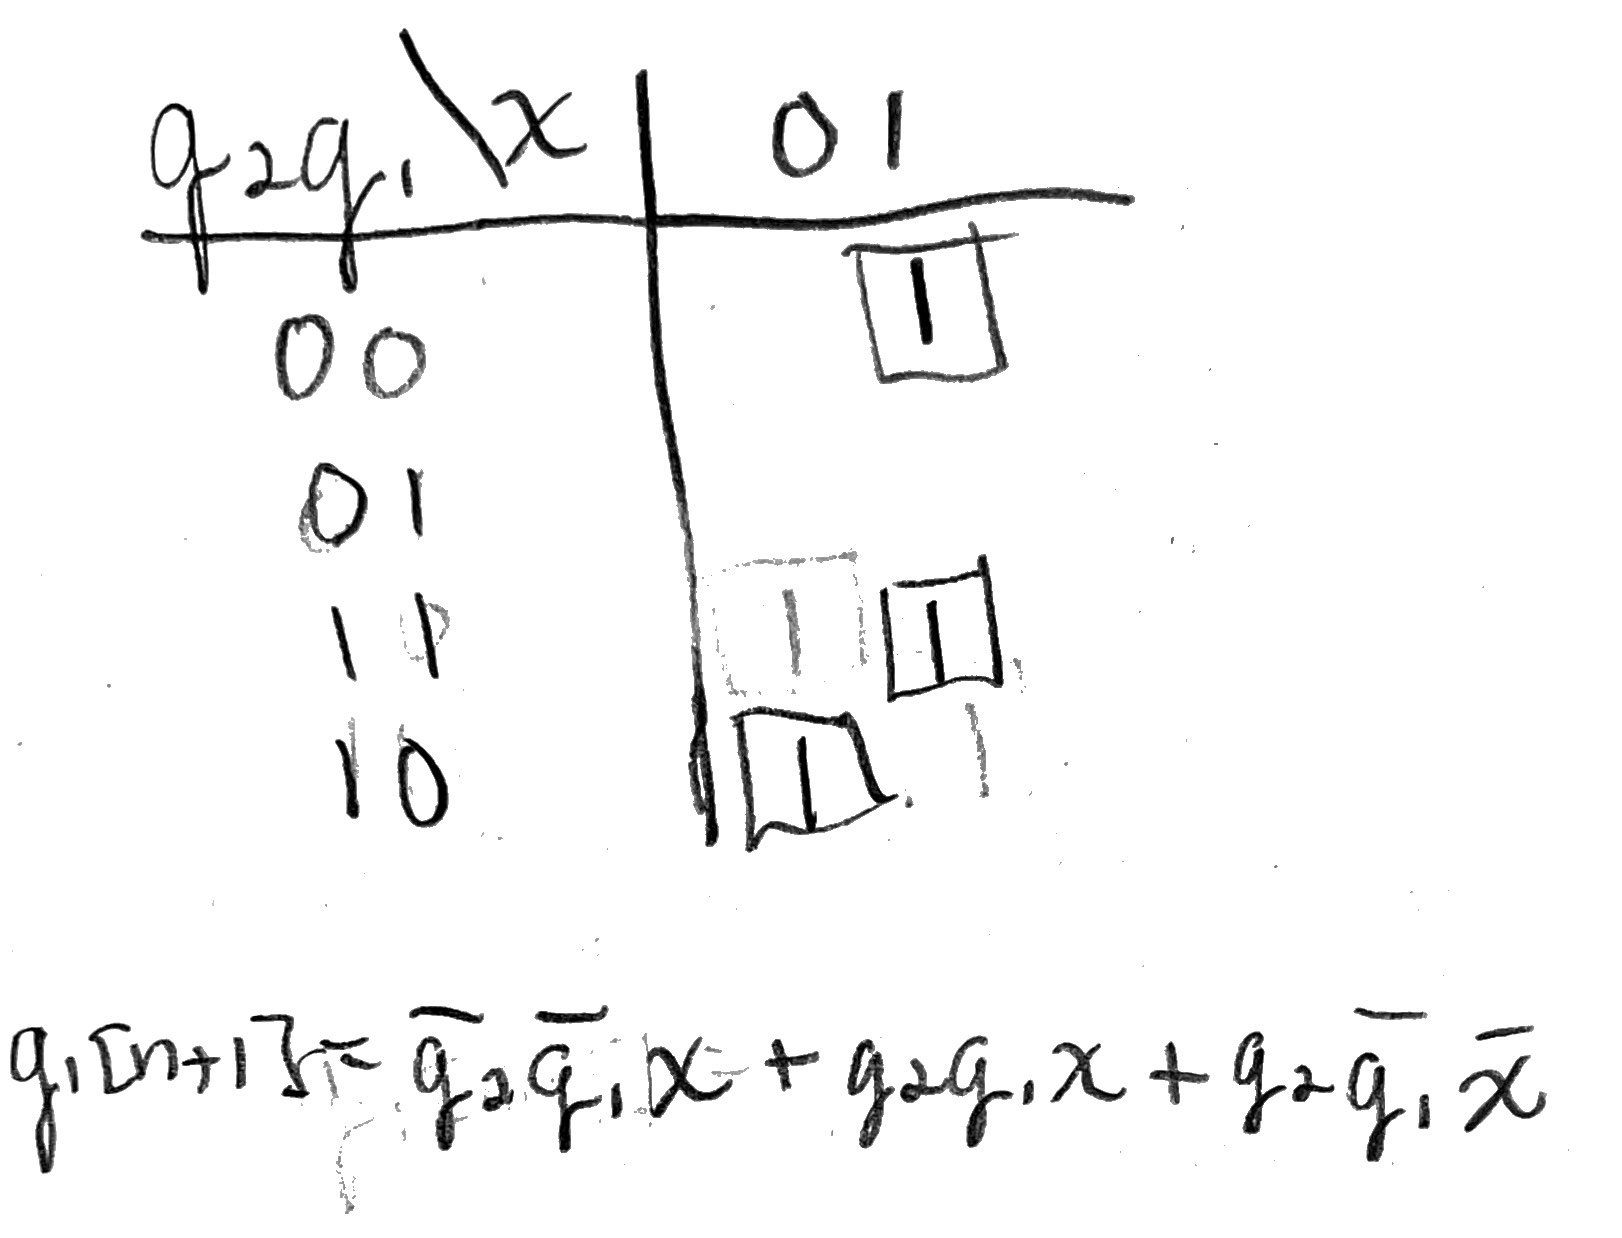 q₂q₁\x 0 1
00 1
01
11 1
10 1
q₁[n+1] = q̅₂q̅₁x + q₂q₁x + q₂q̅₁x̅